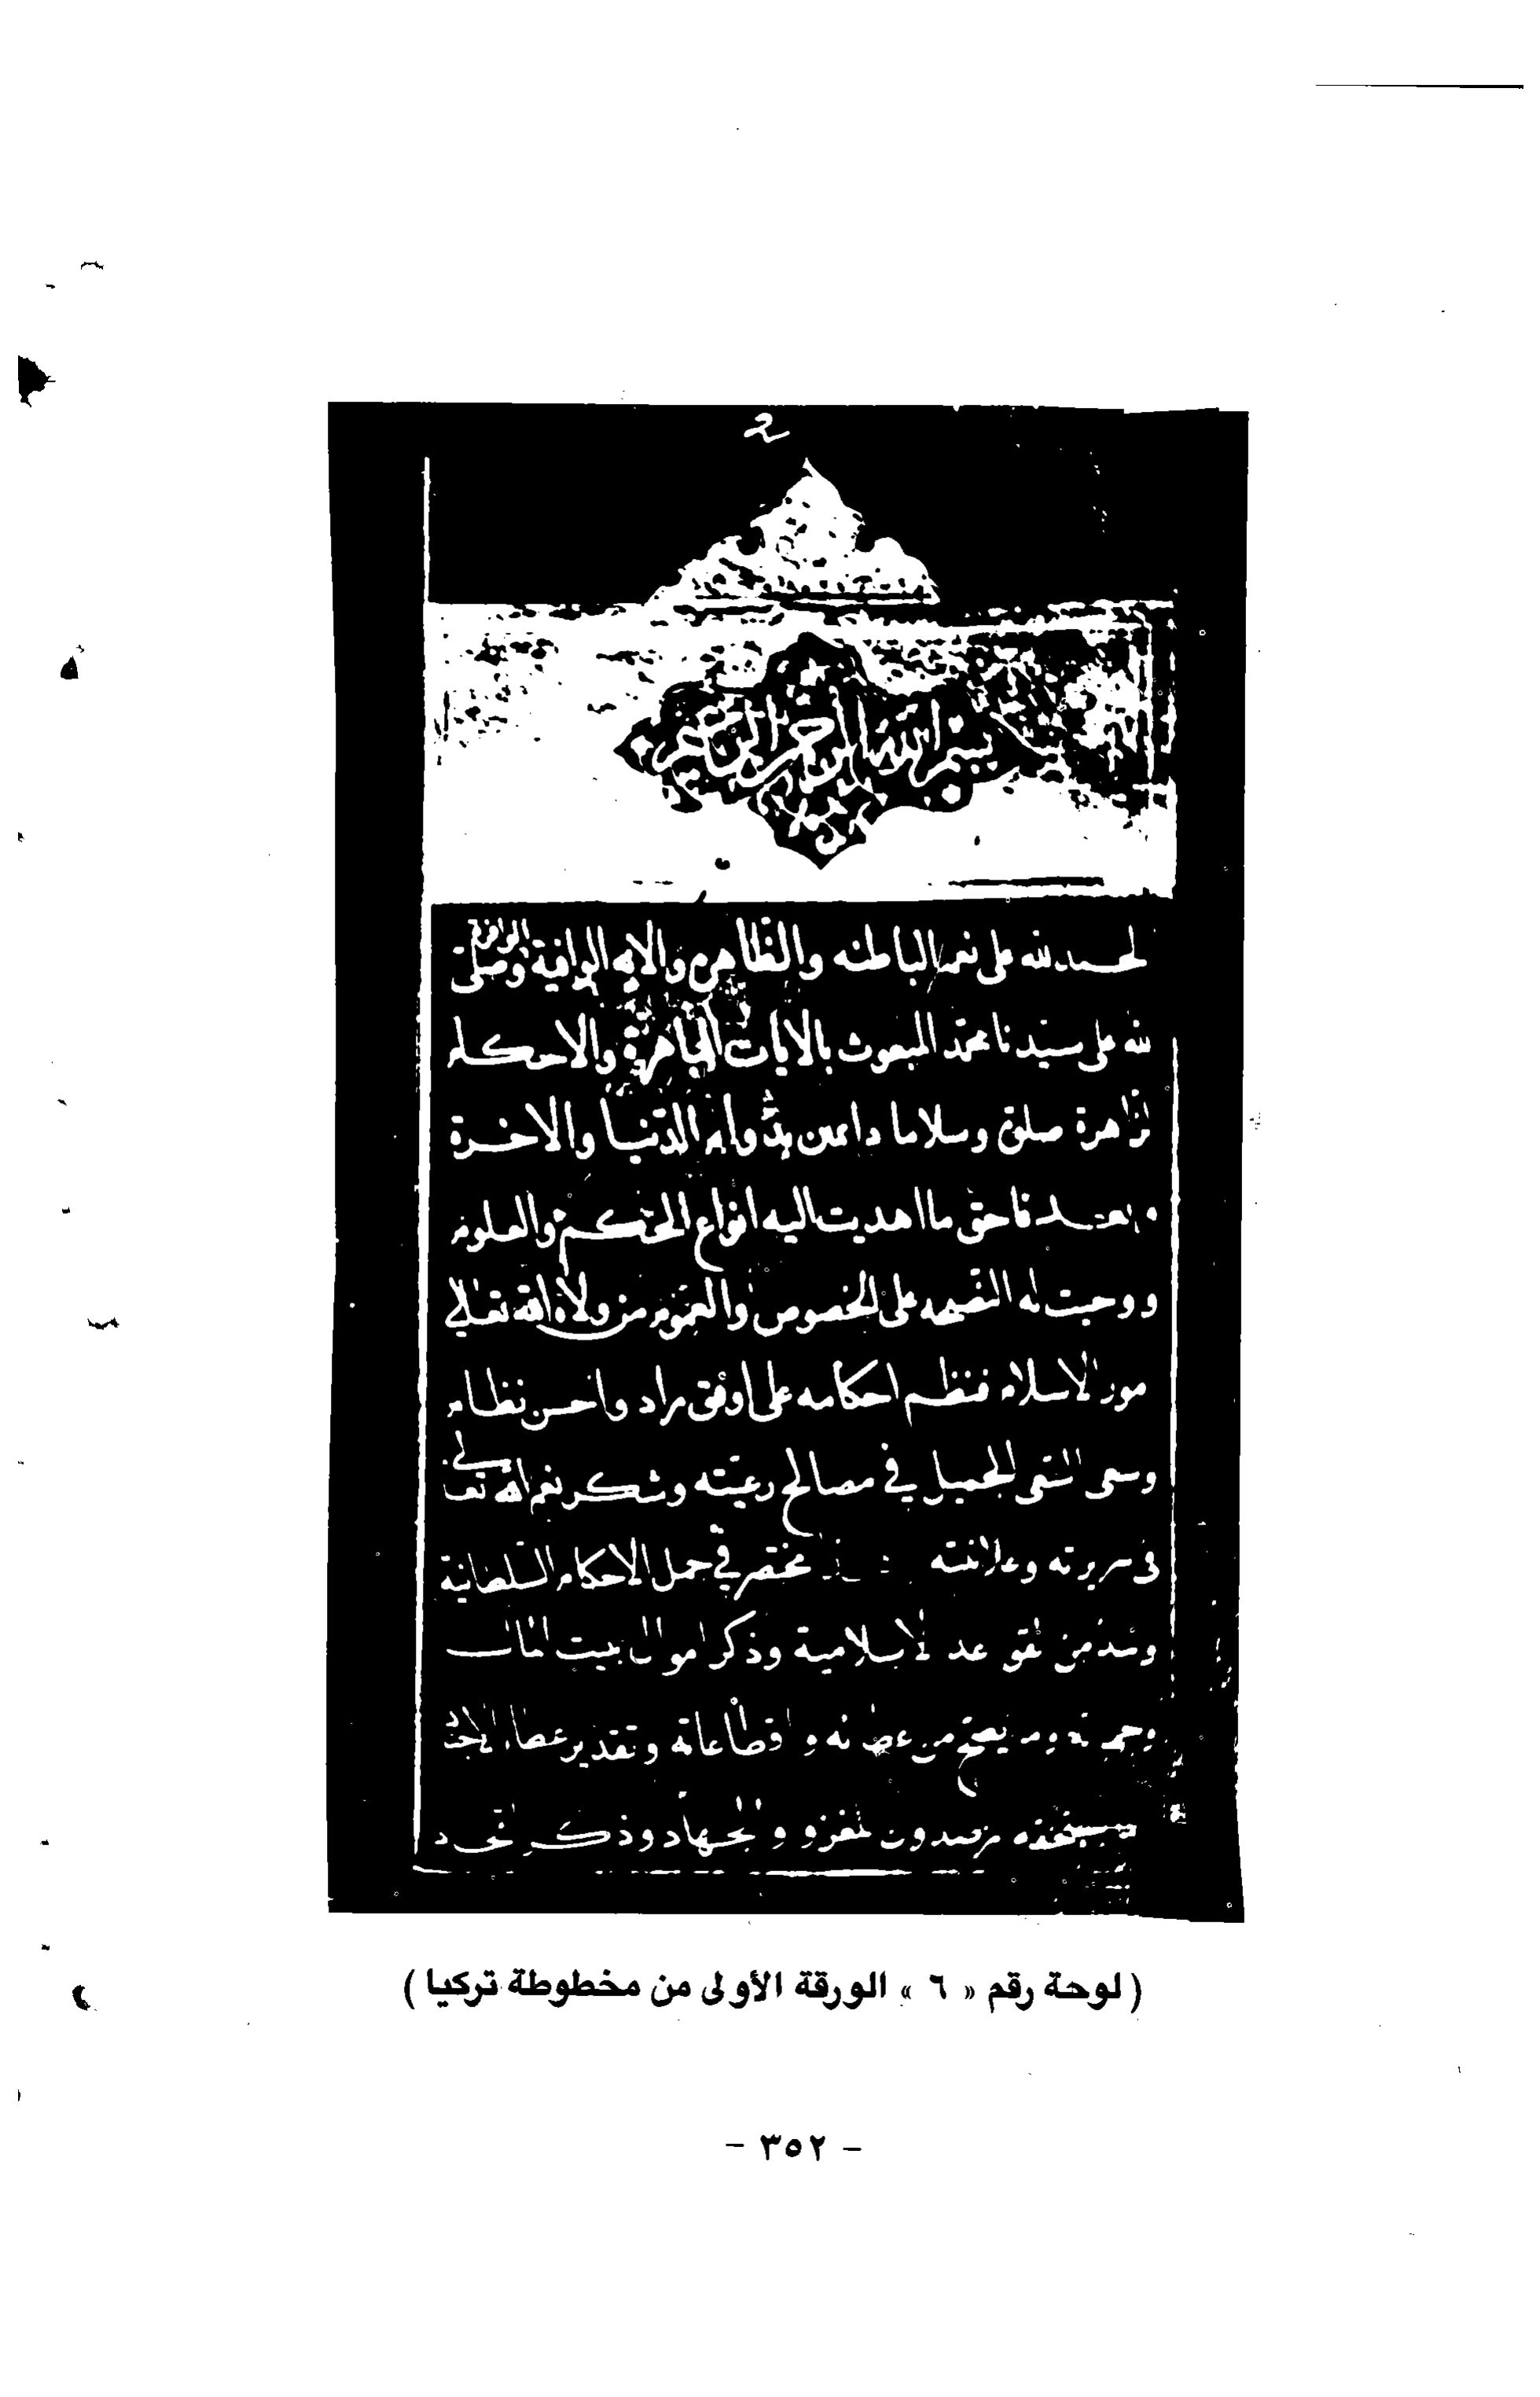 2
بسم الله الرحمن الرحيم
الحمد لله على نعمه الباطنه والظاهرة والايه الوافية الوافرة وصلى
الله على سيدنا محمد المبعوث بالايات الباهرة والاحكام
الزاهرة صلوة وسلاما دائمين بدوام الدنيا والاخرة
وبعد فاحق ما اهديت اليه انواع الحكم والعلوم
ووجبت له النصيحة على الخصوص والعموم من ولاه الله تعالى
امور الاسلام فنظم احكامه على اوفق مراد واحسن نظام
وسعى السعى الجميل في مصالح رعيته وشكر نعم الله تعالى
في سريرته وعلانيته مختصر في جمل الاحكام السلطانية
ونبذ من القواعد الاسلامية وذكر اموال بيت المال
وجهاته ومن يستحق من عطائه واقطاعاته وتقدير عطاء
ومن يستحقه المرصدون للغزو والجهاد وذكر
( لوحة رقم « ٦ » الورقة الأولى من مخطوطة تركيا )
- ٣٥٢ -